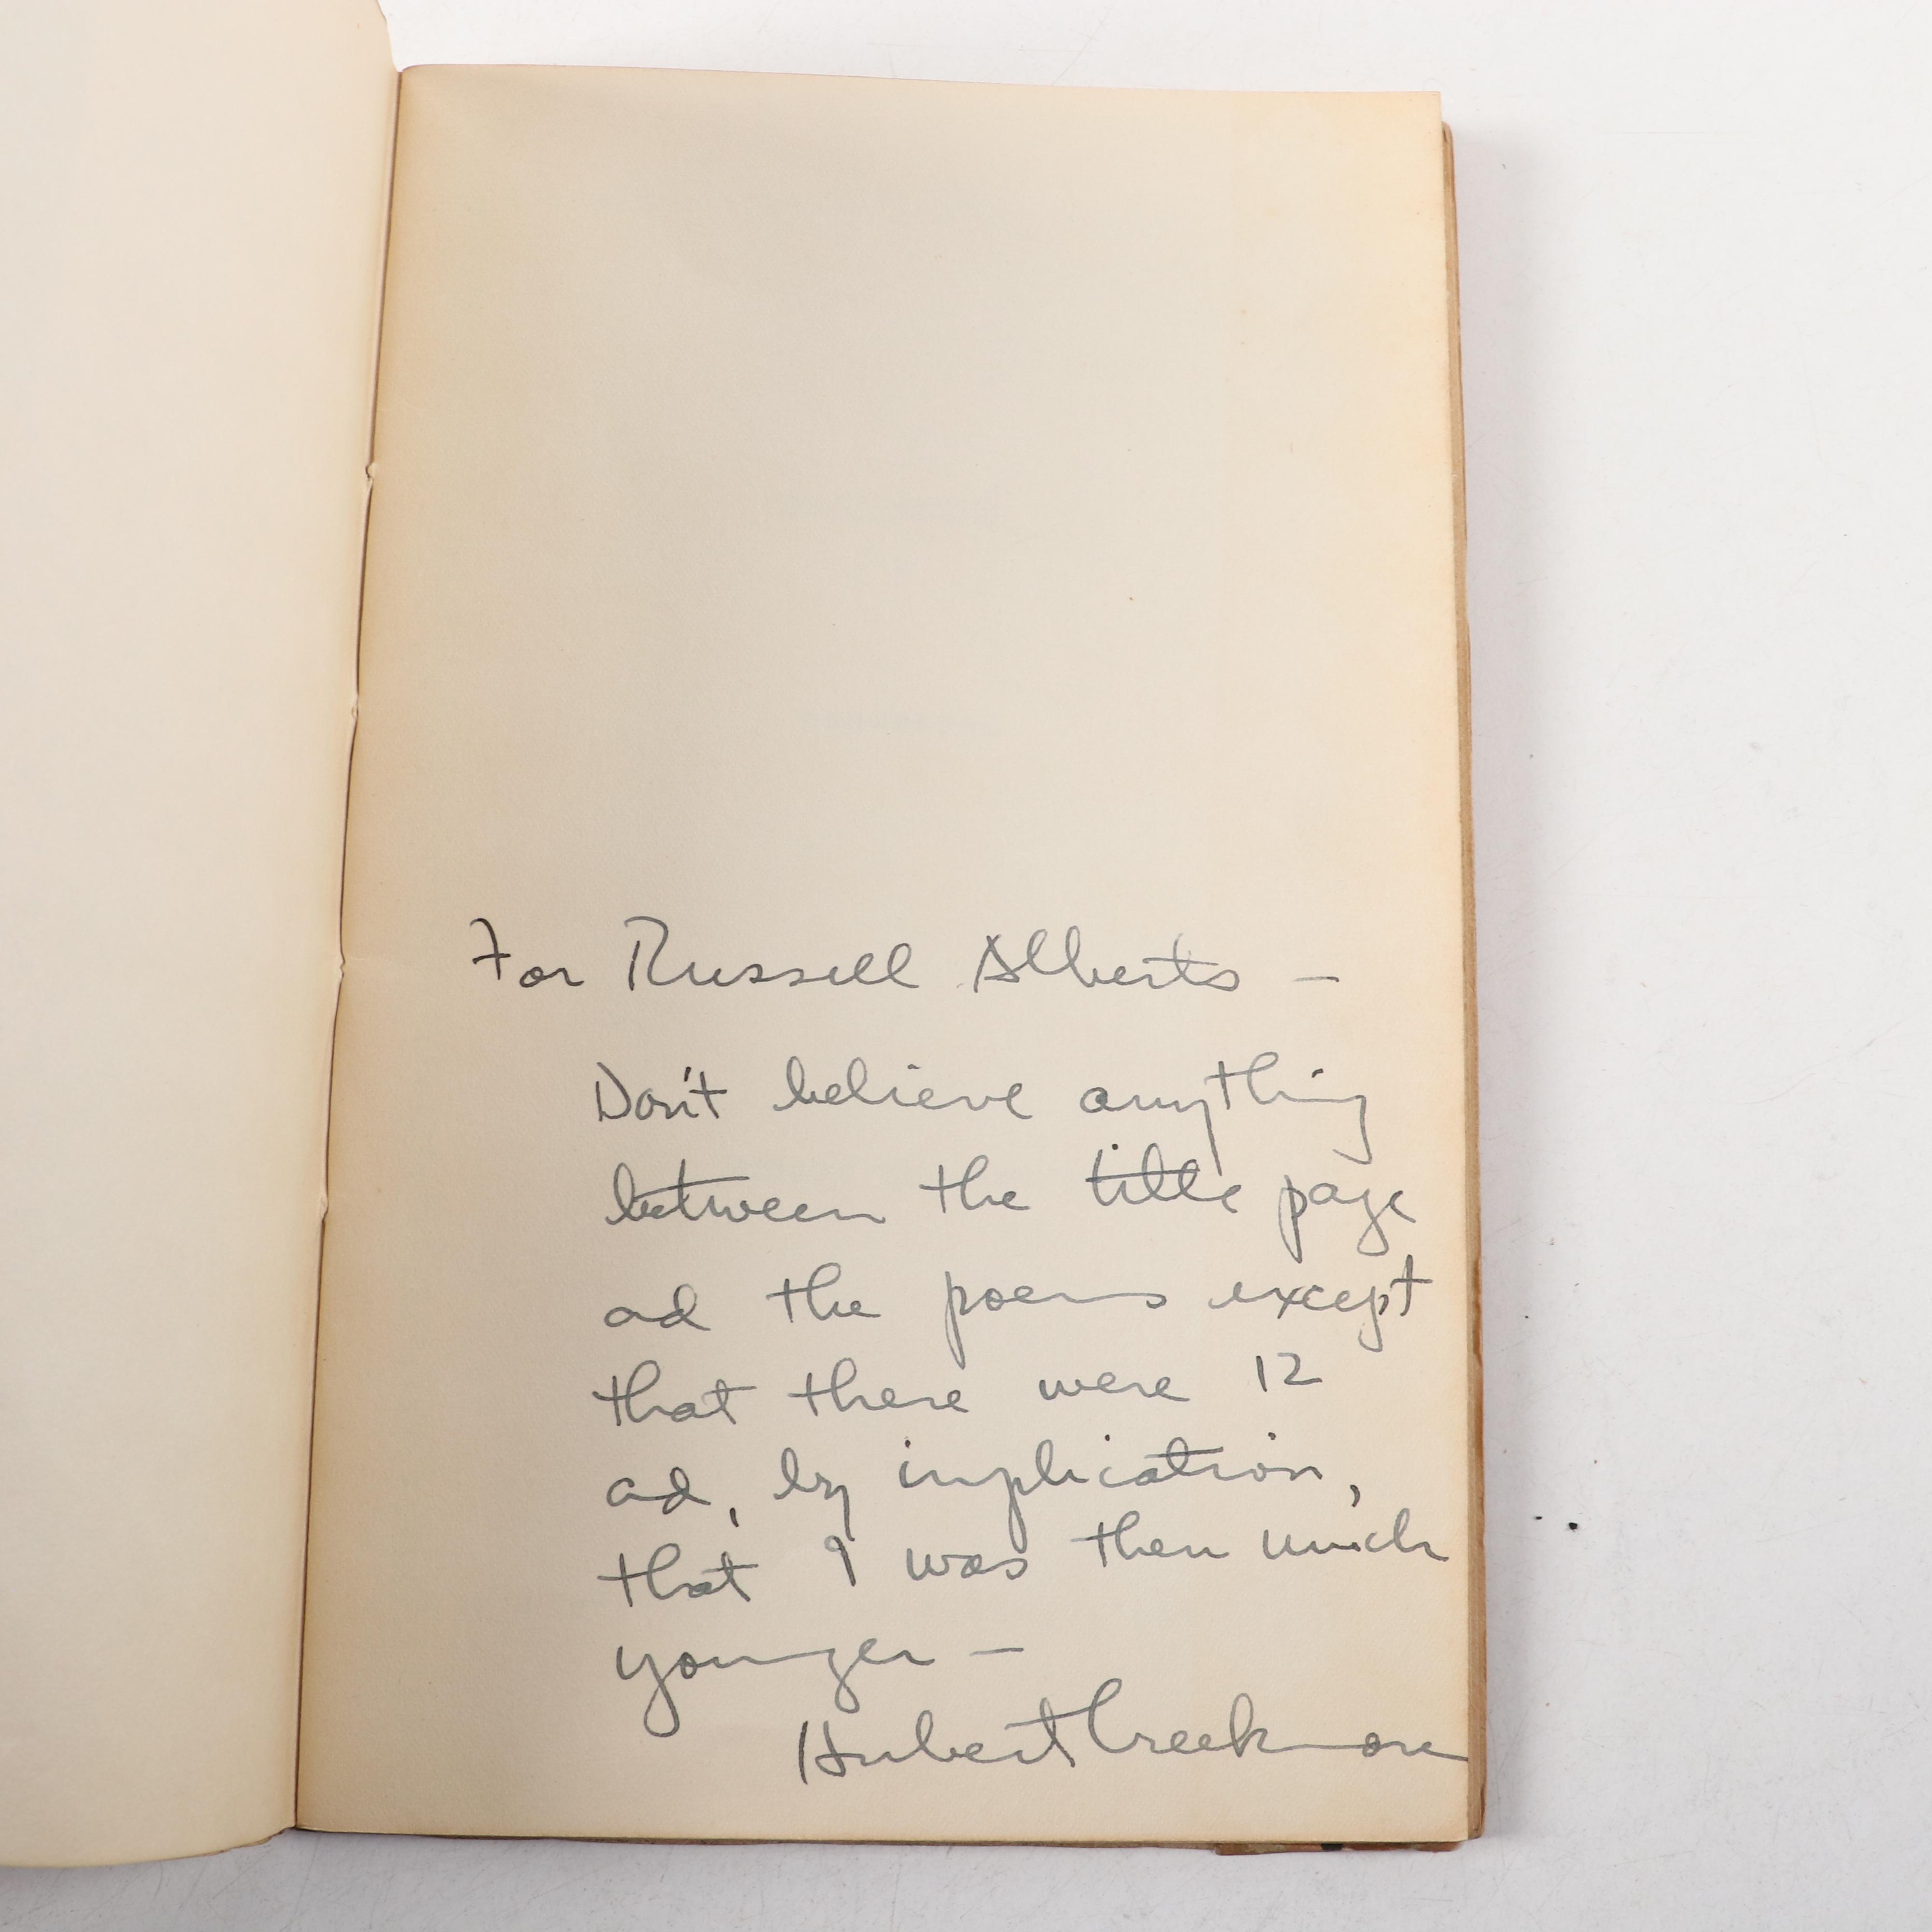 For Russell Alberts —
Don't believe anything
between the title page
ad the poems except
that there were 12
ad, by implication,
that I was then much
younger —
Hubert Creekmore